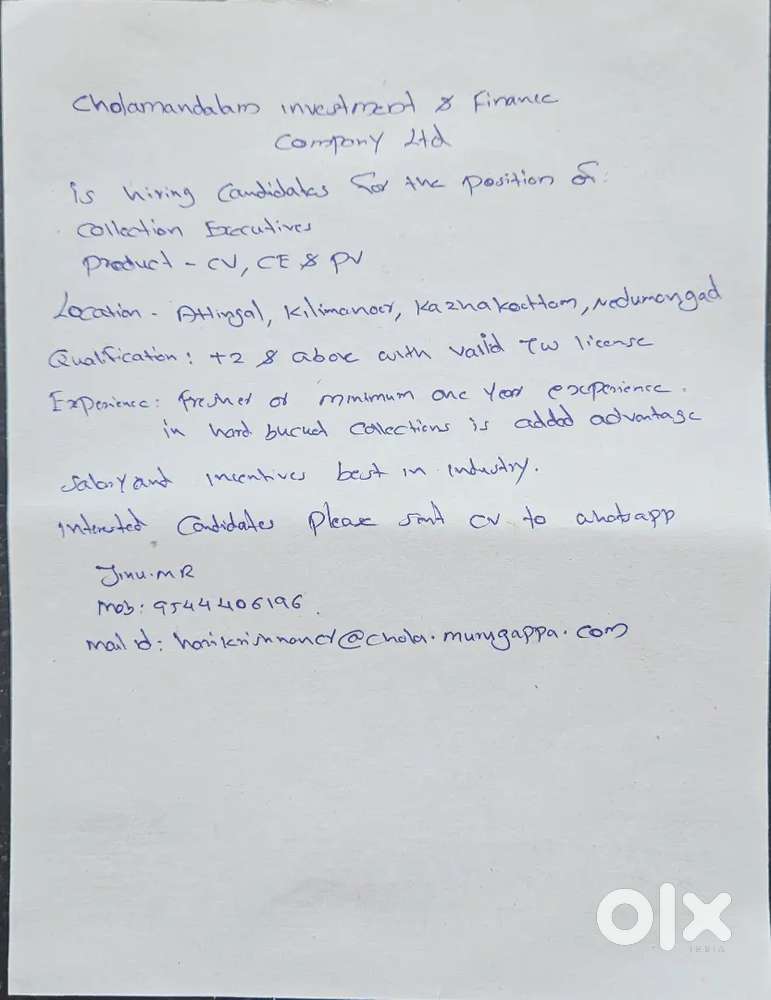 Cholamandalam investment & Finance
Company Ltd
is hiring Candidates for the position of:
Collection Executives
Product - CV, CE & PV
Location - Attingal, Kilimanoor, Kazhakoottam, Nedumangad
Qualification: +2 & above with valid TW license
Experience: fresher or minimum one year experience.
in hard bucket collections is added advantage
Salary and incentives best in industry.
interested Candidates Please sent CV to whatsapp
Jinu.M R
Mob: 9544406196
mail id: harikrishnancr@chola.murugappa.com
olx
INDIA